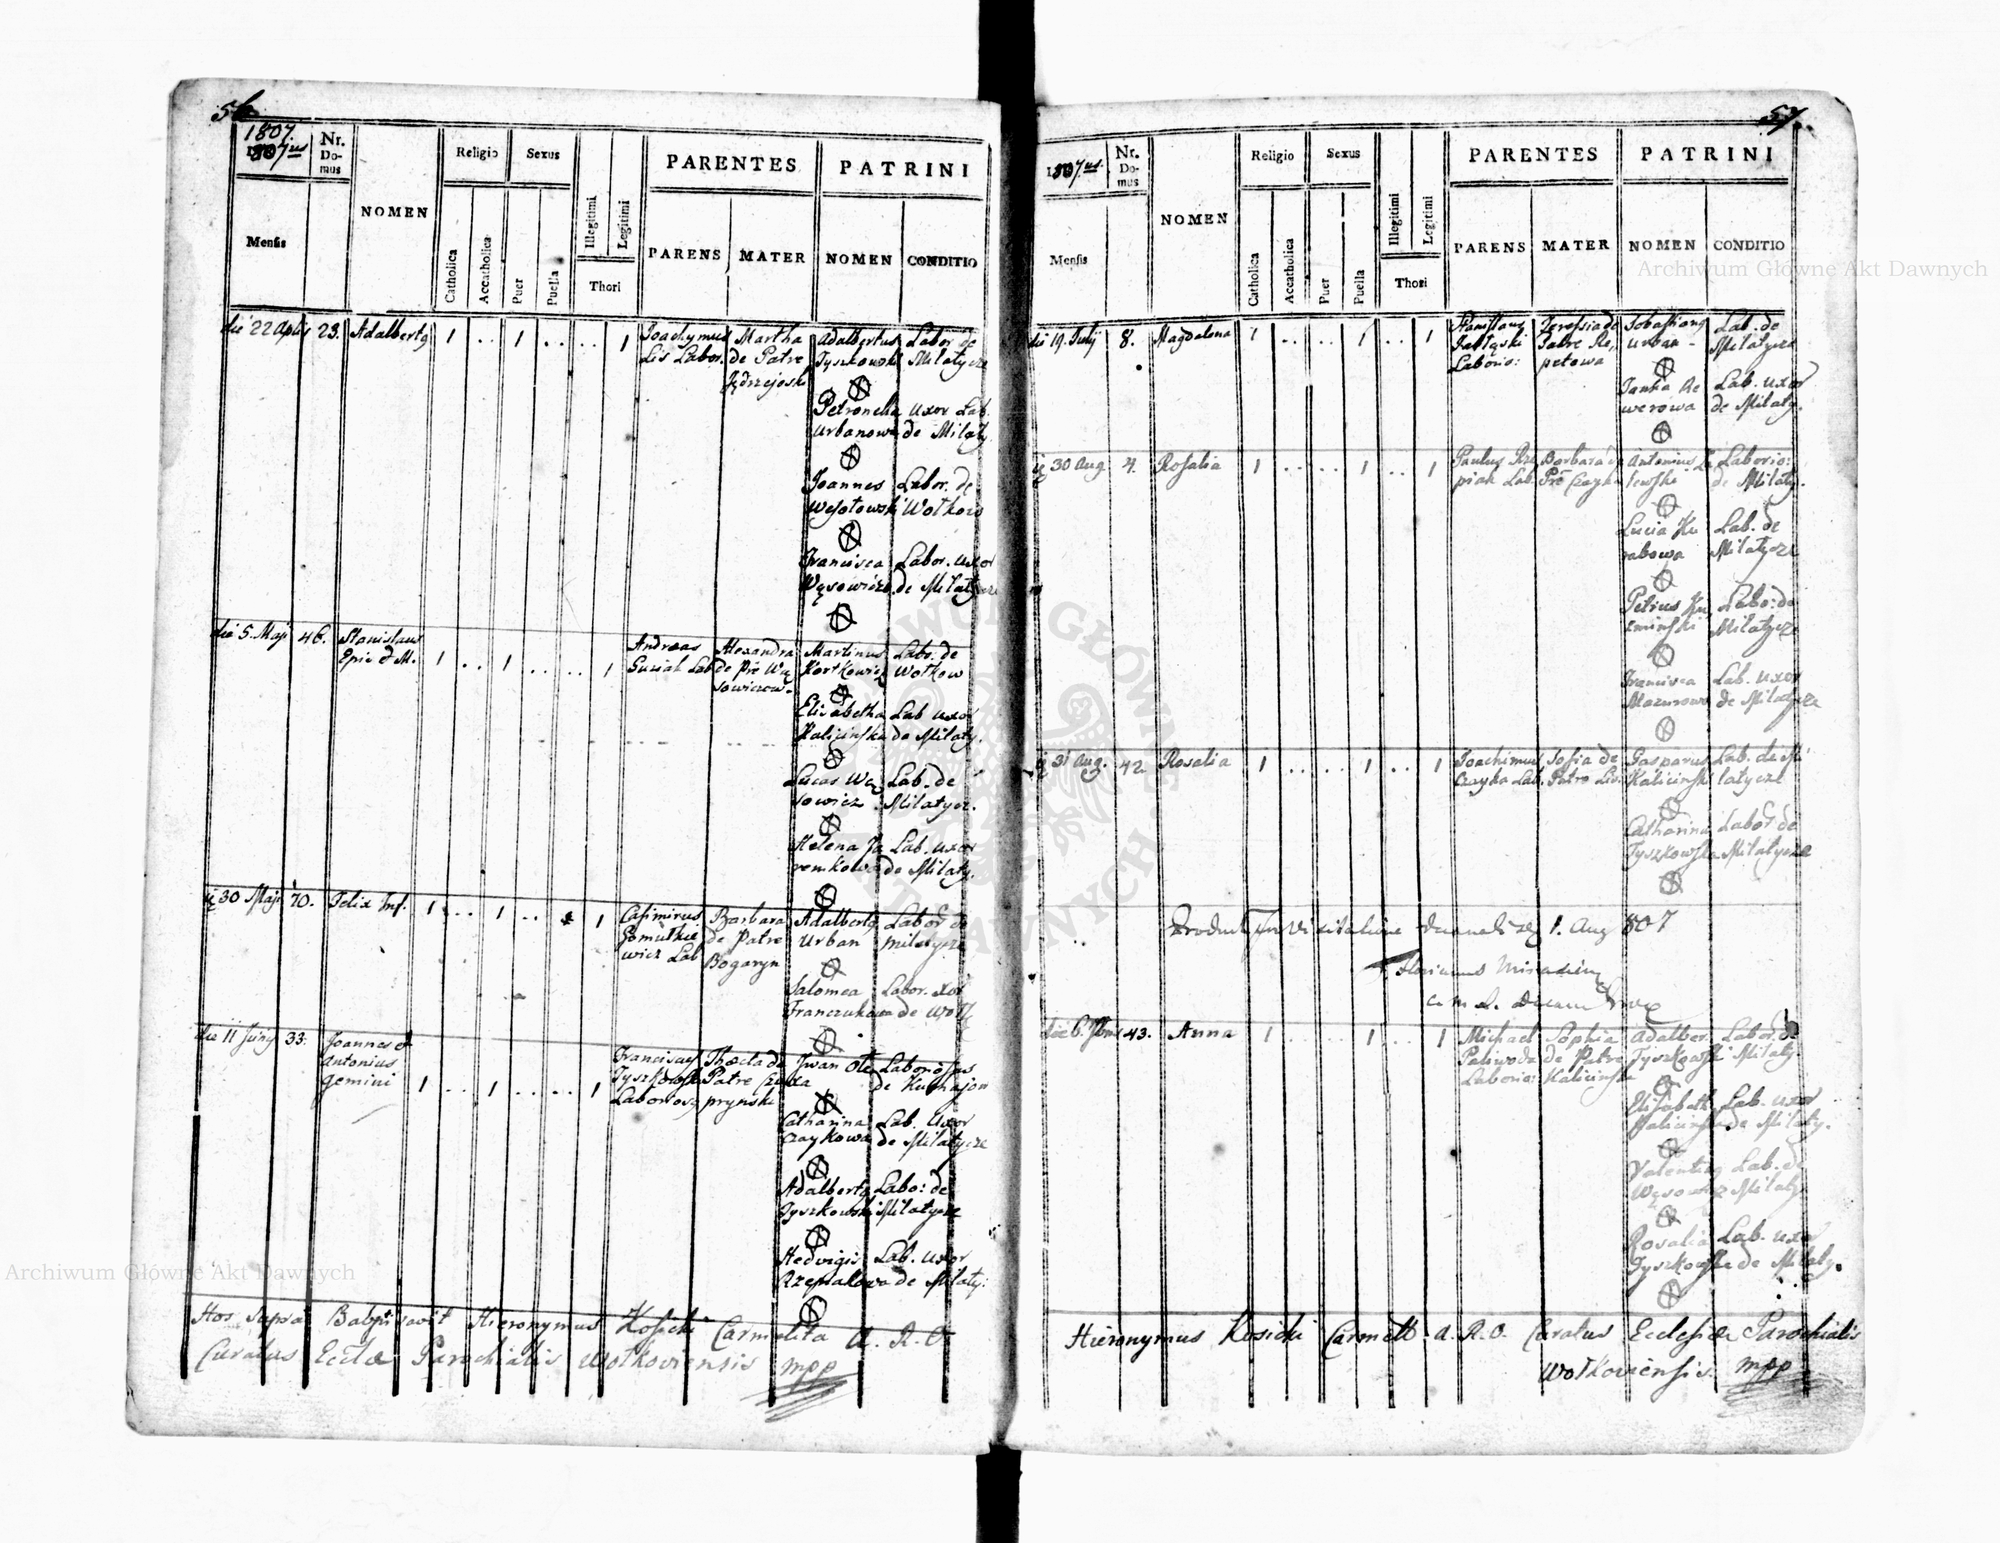 56
1807.
1807us
Nr. Domus
NOMEN
Religio
Sexus
PARENTES
PATRINI
Mensis
Catholica
Accatholica
Puer
Puella
Illegitimi
Legitimi
Thori
PARENS
MATER
NOMEN
CONDITIO
die 22 Aplis 23. Adalbertq 1 .. 1 .. .. 1 Joachymus Martha Adalbertus Labor de
Lis Labor. de Patre Tyszkowski Milatycze
Jędrzejoski
Petronella uxor Lab.
Urbanowa de Milaty.
Joannes Labor. de
Wesołowski Wołkow
Francisca Labor. uxor
Wąsowicz de Milatycze
die 5. Maji 46. Stanislaus Andreas Alexandra Martinus Labo. de
Epis & M. 1 .. 1 .. .. 1 Lab de Pre Wą Kortkowicz Wołkow
sowiczow.
Elisabetha Lab uxor
Kalicinska de Milaty.
Lucas Wą Lab. de
sowicz Milatycz.
Helena Ja Lab. uxor
remkowa de Milaty.
30 Maji 70. Felix Inf. 1 .. 1 .. 1 Casimirus Barbara Adalbertq Labor de
Gomułkie de Patre Urban Milatycze
wicz Lab Bogaryn
Salomea Labor. uxor
Franczukowa de Wołk
die 11 Juny 33. Joannes & Franciscus Thecla de Iwan Labориosus
Antonius Tyszkowski Patre de
gemini 1 .. 1 .. .. 1 Laboriosq prynski
Catharina Lab. Uxor
Czaykowa de Milatycze
Adalbertq Labo: de
Tyszkowski Milatycze
Hedvigis Lab. uxor
Rzepiakowa de Milaty:
Hos supra Babtisavit Hieronymus Kosicki Carmelita A. R. O.
Curatus Eccla Parochialis Wołkoviensis mpp
57.
1807.us.
Nr. Domus
NOMEN
Religio
Sexus
PARENTES
PATRINI
Mensis
Catholica
Accatholica
Puer
Puella
Illegitimi
Legitimi
Thori
PARENS
MATER
NOMEN
CONDITIO
die 19. July 8. Magdalena 1 .. .. 1 .. 1 Stanislaus Teresia de Sebastianq Lab. de
Patre Re, Urban Milatycze
Laborio: petowa
Lab. uxor
werowa de Milaty.
30 Aug. 4. Rosalia 1 .. .. 1 .. 1 Paulus Rze Barbara de Antonius Laborio:
piak Lab. Pre Czayka lewski de Milaty.
Lucia Ku Lab. de
rabowa Milatycze
Petrus Ku Labo: de
zminski Milatycze
Francisca Lab. uxor
Mazurowa de Milatycze
31 Aug. 42. Rosalia 1 .. .. 1 .. 1 Joachimus Sofia de Gasparus Lab. de Mi
Czayka Lab. Patre Lis. Kalicinski latycze
Catharina Labor de
Tyszkowska Milatycze
Product in Visitatione Decanali 1. Aug 807
Florianus
die 6. 7bris 43. Anna 1 .. .. 1 .. 1 Michael Sophia Adalber. Labor. de
Paliwoda de Patre Tyszkowski Milaty.
Laborio: Kalicinska
Elisabeth Lab. uxor
Kalicinska de Milaty.
Valentinq Lab. de
Wąsowicz Milaty.
Rosalia Lab. uxor
Tyszkowska de Milaty.
Hieronymus Kosicki Carmelt. A. R. O. Curatus Ecclesiæ Parochialis
Wołkoviensis. mpp
Archiwum Główne Akt Dawnych
Archiwum Główne Akt Dawnych
ARCHIWUM GŁÓWNE AKT DAWNYCH